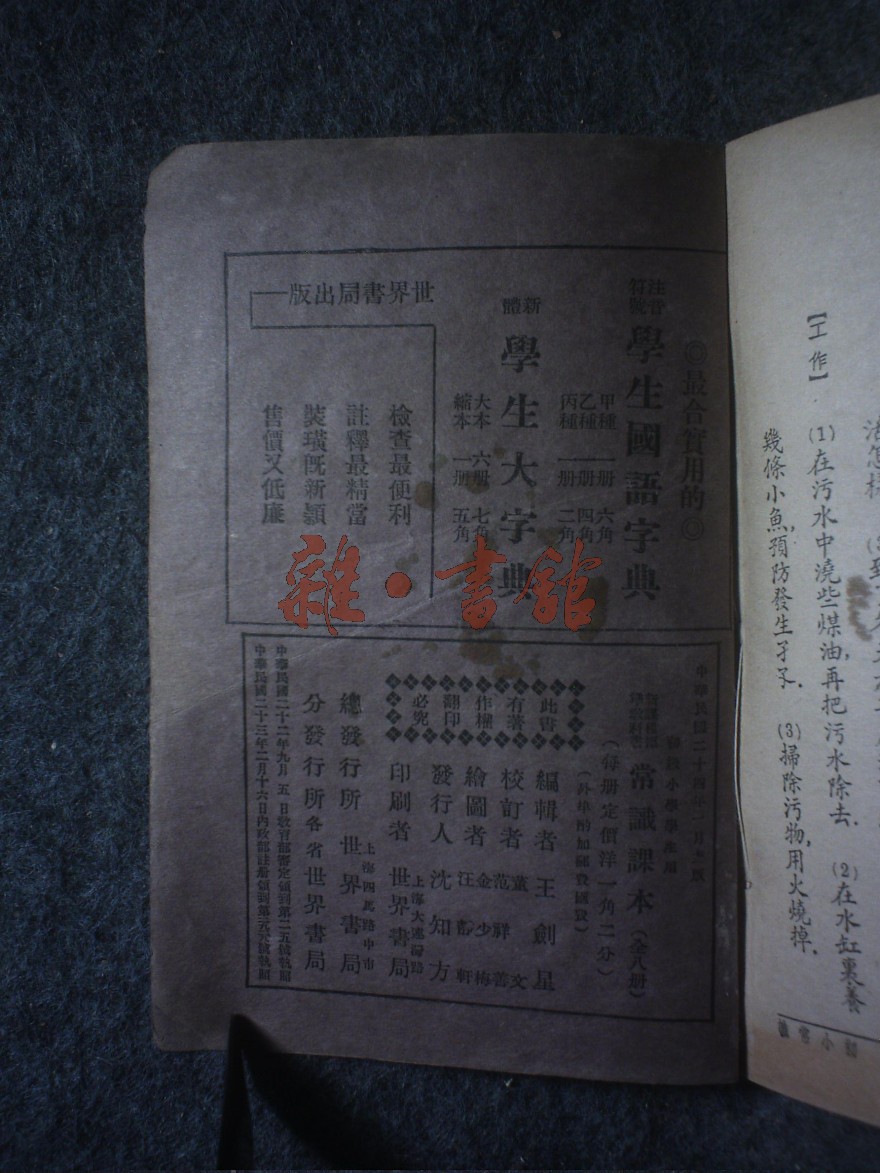 ◎最合實用的◎
注音符號
學生國語字典
甲種一册六角
乙種一册四角
丙種一册二角
新體
學生大字典
大本六册七角
縮本一册五角
世界書局出版
檢查最便利
註釋最精當
裝璜既新頴
售價又低廉
初級小學學生用
常識課本(全八册)
(每册定價洋一角二分)
(外埠酌加郵費匯費)
此書有著作權翻印必究
編輯者 王劍星
校訂者 董文 范祥善
繪圖者 金少梅 汪軒
發行人 沈知方
印刷者 上海大連灣路 世界書局
總發行所 上海四馬路中市 世界書局
分發行所 各省世界書局
中華民國二十二年九月五日教育部審定領到第二五號執照
中華民國二十三年二月十六日內政部註册領到第號執照
雜·書舘
【工作】
(1)在污水中澆些煤油,再把污水除去. (2)在水缸裏養
幾條小魚,預防發生孑孓. (3)掃除污物,用火燒掉.